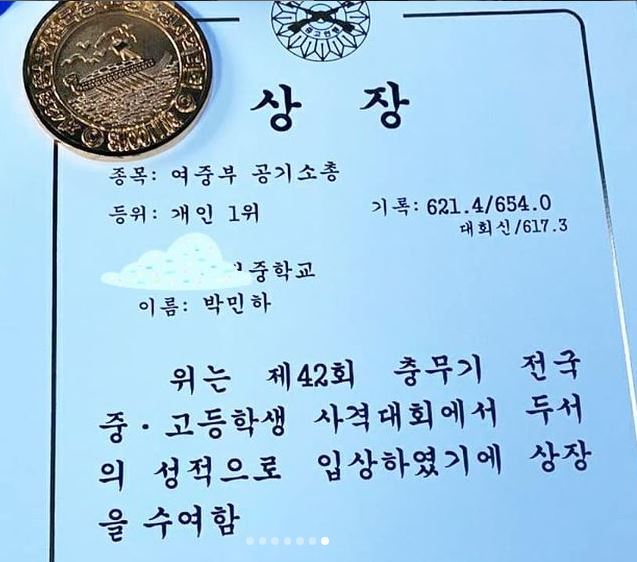 상 장
종목: 여중부 공기소총
등위: 개인 1위
기록: 621.4/654.0
대회신/617.3
중학교
이름: 박민하
위는 제42회 충무기 전국
중·고등학생 사격대회에서 두서
의 성적으로 입상하였기에 상장
을 수여함